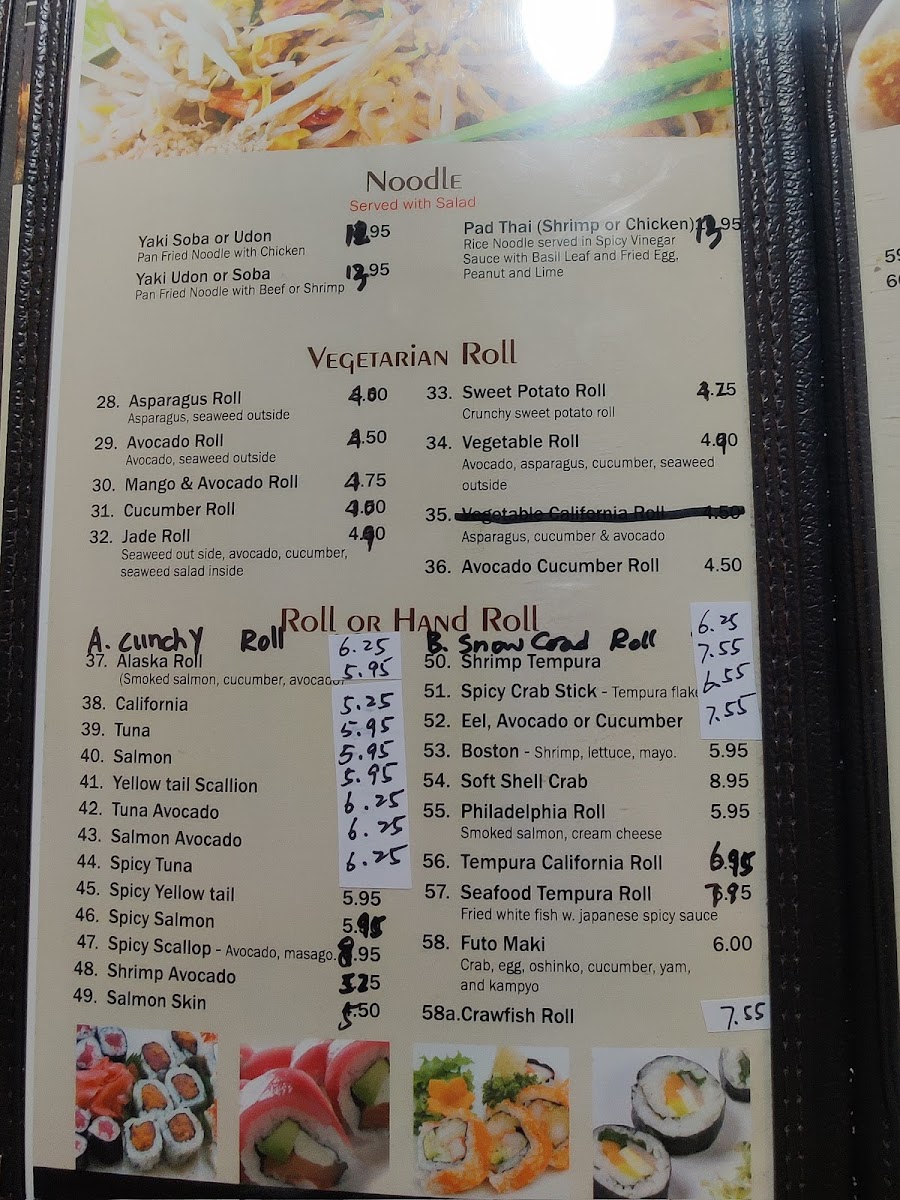 Noodle
Served with Salad
Yaki Soba or Udon 12.95
Pan Fried Noodle with Chicken
Yaki Udon or Soba 13.95
Pan Fried Noodle with Beef or Shrimp
Pad Thai (Shrimp or Chicken) 13.95
Rice Noodle served in Spicy Vinegar
Sauce with Basil Leaf and Fried Egg,
Peanut and Lime
Vegetarian Roll
28. Asparagus Roll
Asparagus, seaweed outside
29. Avocado Roll 4.50
Avocado, seaweed outside
30. Mango & Avocado Roll 4.75
31. Cucumber Roll
32. Jade Roll
Seaweed out side, avocado, cucumber,
seaweed salad inside
33. Sweet Potato Roll
Crunchy sweet potato roll
34. Vegetable Roll
Avocado, asparagus, cucumber, seaweed
outside
35. Vegetable California Roll 4.50
Asparagus, cucumber & avocado
36. Avocado Cucumber Roll 4.50
Roll or Hand Roll
A. Cunchy Roll 6.25
37. Alaska Roll 5.95
(Smoked salmon, cucumber, avocado)
38. California 5.25
39. Tuna 5.95
40. Salmon 5.95
41. Yellow tail Scallion 5.95
42. Tuna Avocado 6.25
43. Salmon Avocado 6.25
44. Spicy Tuna 6.25
45. Spicy Yellow tail 5.95
46. Spicy Salmon 5.95
47. Spicy Scallop - Avocado, masago. 8.95
48. Shrimp Avocado
49. Salmon Skin 5.50
B. Snow Crad Roll 6.25
50. Shrimp Tempura 7.55
51. Spicy Crab Stick - Tempura flake 6.55
52. Eel, Avocado or Cucumber 7.55
53. Boston - Shrimp, lettuce, mayo. 5.95
54. Soft Shell Crab 8.95
55. Philadelphia Roll 5.95
Smoked salmon, cream cheese
56. Tempura California Roll 6.95
57. Seafood Tempura Roll 7.95
Fried white fish w. japanese spicy sauce
58. Futo Maki 6.00
Crab, egg, oshinko, cucumber, yam,
and kampyo
58a. Crawfish Roll 7.55